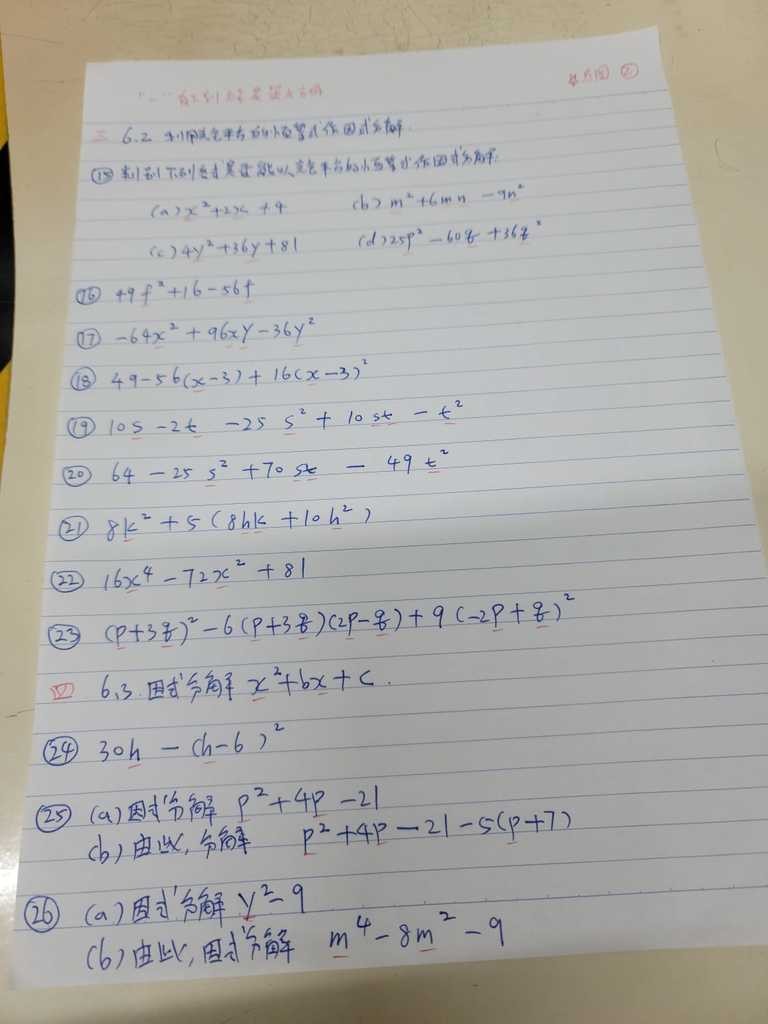 "一"
②
三 6.2 利用完全平方的恆等式作因式分解.
⑮ 判別下列各式是否能以完全平方的恆等式作因式分解.
(a) x²+2x+4 (b) m²+6mn-9n²
(c) 4y²+36y+81 (d) 25p²-60q+36q²
⑯ 49f²+16-56f
⑰ -64x²+96xy-36y²
⑱ 49-56(x-3)+16(x-3)²
⑲ 10s-2t-25s²+10st-t²
⑳ 64-25s²+70st-49t²
㉑ 8k²+5(8hk+10h²)
㉒ 16x⁴-72x²+81
㉓ (p+3q)²-6(p+3q)(2p-q)+9(-2p+q)²
四 6.3. 因式分解 x²+bx+c.
㉔ 30h-(h-6)²
㉕ (a) 因式分解 p²+4p-21
(b) 由此, 分解 p²+4p-21-5(p+7)
㉖ (a) 因式分解 y²-9
(b) 由此, 因式分解 m⁴-8m²-9